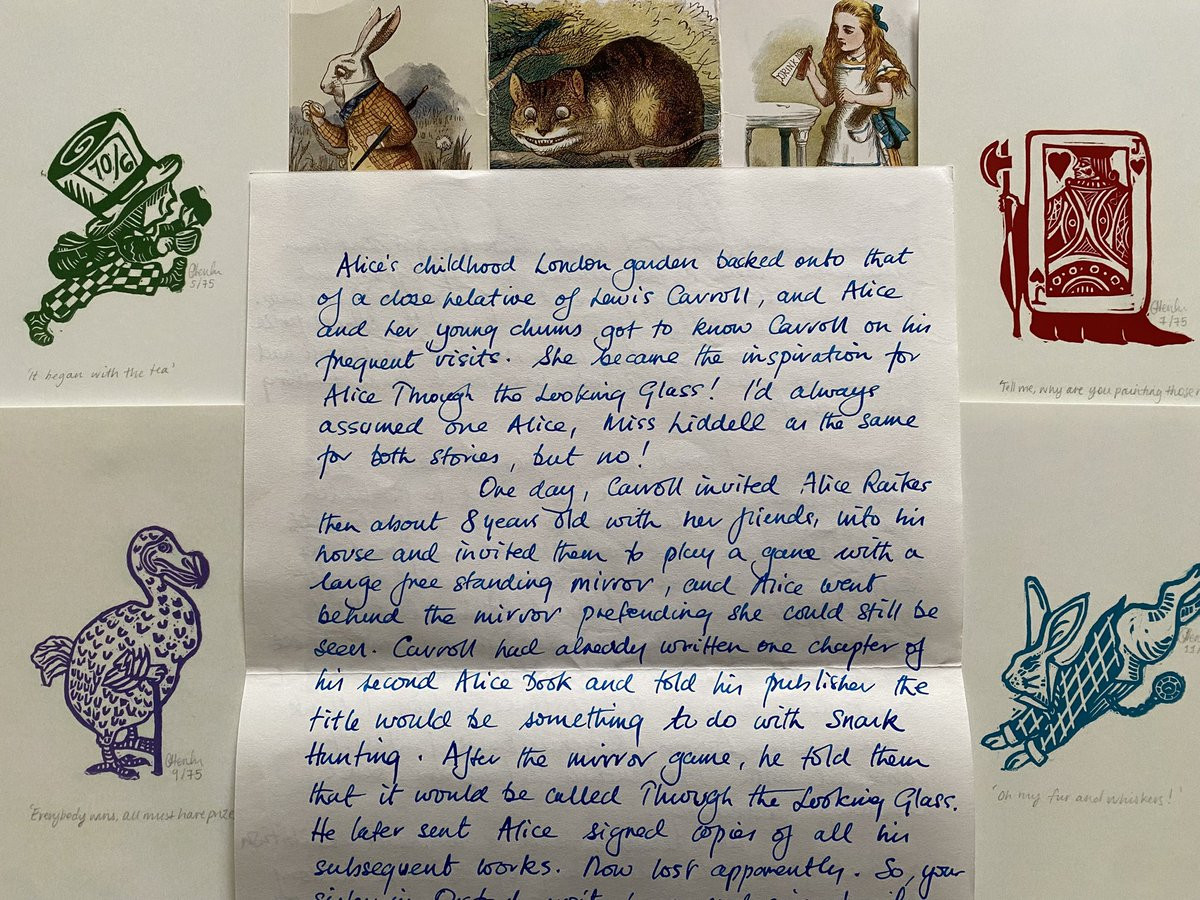 DRINK
10/6
5/75
'It began with the tea'
J
J
7/75
'Tell me, why are you painting those
Alice's childhood London garden backed onto that
of a close relative of Lewis Carroll, and Alice
and her young chums got to know Carroll on his
frequent visits. She became the inspiration for
Alice Through the Looking Glass! I'd always
assumed one Alice, Miss Liddell as the same
for both stories, but no!
One day, Carroll invited Alice Raikes
then about 8 years old with her friends, into his
house and invited them to play a game with a
large free standing mirror, and Alice went
behind the mirror pretending she could still be
seen. Carroll had already written one chapter of
his second Alice Book and told his publisher the
title would be something to do with Snark
Hunting. After the mirror game, he told them
that it would be called Through the Looking Glass.
He later sent Alice signed copies of all his
subsequent works. Now lost apparently. So, your
9/75
'Everybody wins, all must have prize
11
'Oh my fur and whiskers!'